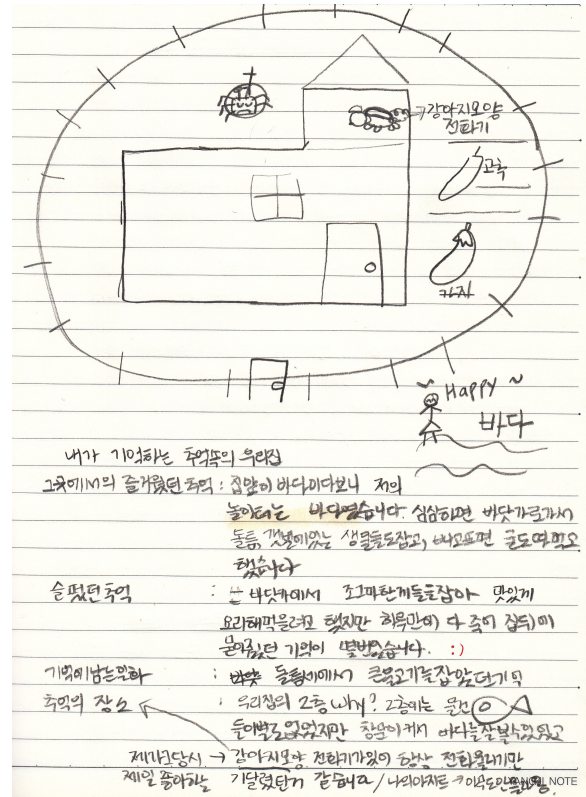 강아지모양
전화기
고추
가지
Happy ~
바다
내가 기억하는 추억속의 우리집
그곳에서의 즐거웠던 추억 : 집앞이 바다이다보니 저의
놀이터는 바다였습니다. 심심하면 바닷가로가서
돌틈, 갯벌에있는 생물들도잡고, 배고프면 굴도따먹고
했습니다
슬펐던추억 : 바닷가에서 조그마한게들을잡아 맛있게
요리해먹을려고 했지만 하룻만에 다 죽어 집뒤에
묻어줬던 기억이 몇번있습니다. :)
기억에남는 : 돌틈에서 큰물고기를잡았던기억
추억의 장소 : 우리집의 2층 why? 2층에는 물건
들이별로없었지만 창문이커서 바다를잘볼수있었고
제가그당시 → 강아지모양 전화기가있어 항상 전화울리기만
제일 좋아하는 기달렸던거 같습니다 / 나의아지트 →
NOTE